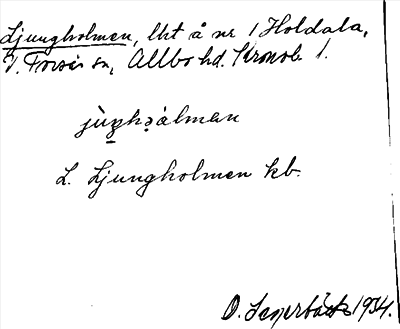 Ljungholmen, lht å nr 1 Holdala,
V. Torsås sn, Allbo hd. Kronob. l.
jùŋhə̣àlman
L. Ljungholmen kb.
O. 1934.